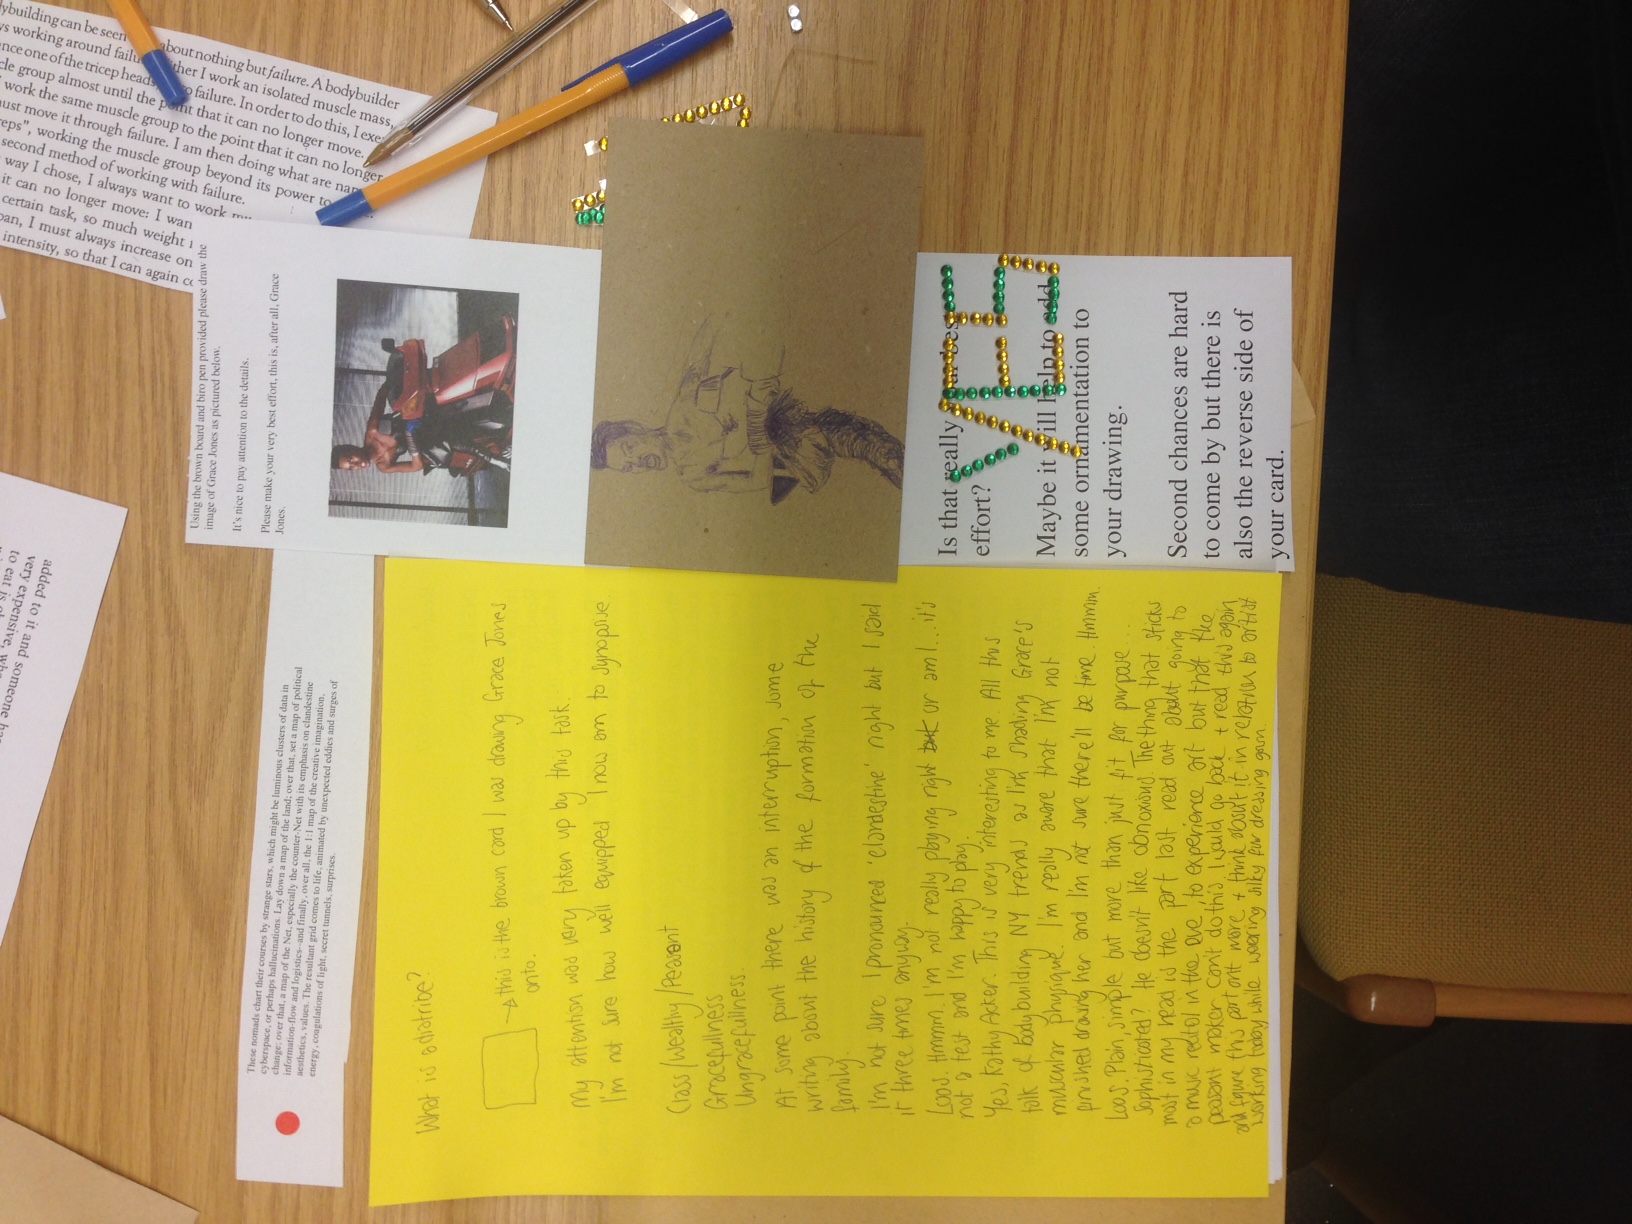 bodybuilding can be seen about nothing but failure. A bodybuilder
working around failure I work an isolated muscle mass,
one of the tricep heads to failure. In order to do this, I
muscle group almost until the point that it can no longer move.
work the same muscle group to the point that it can no longer
must move it through failure. I am then doing what are
reps", working the muscle group beyond its power to
second method of working with failure.
way I chose, I always want to work
it can no longer move: I
certain task, so much weight
I must always increase
intensity, so that I can again
added to it and someone
very expensive,
to eat is
Using the brown board and biro pen provided please draw the
image of Grace Jones as pictured below.
It's nice to pay attention to the details.
Please make your very best effort, this is, after all, Grace
Jones.
YES
Is that really
effort?
Maybe it will help to add
some ornamentation to
your drawing.
Second chances are hard
to come by but there is
also the reverse side of
your card.
These nomads chart their courses by strange stars, which might be luminous clusters of data in
cyberspace, or perhaps hallucinations. Lay down a map of the land; over that, set a map of political
change; over that, a map of the Net, especially the counter-Net with its emphasis on clandestine
information-flow and logistics--and finally, over all, the 1:1 map of the creative imagination,
aesthetics, values. The resultant grid comes to life, animated by unexpected eddies and surges of
energy, coagulations of light, secret tunnels, surprises.
What is a diatribe?
this is the brown card I was drawing Grace Jones
onto.
My attention was very taken up by this task.
I'm not sure how well equipped I now am to synopsise.
Class/Wealthy/Peasant
Gracefullness
Ungracefullness.
At some point there was an interruption, some
writing about the history of the formation of the
family.
I'm not sure I pronounced 'clandestine' right but I said
it three times anyway.
Loos. Hmmm. I'm not really playing right but or am I... it's
not a test and I'm happy to play.
Yes, Kathy Acker. This is very interesting to me. All this
talk of bodybuilding NY trends as I'm shading Grace's
muscular physique. I'm really aware that I'm not
finished drawing her and I'm not sure there'll be time. Hmmm.
Loos. Plain, simple but more than just fit for purpose...
Sophisticated? He doesn't like obnoxious. The thing that sticks
most in my head is the part I last read out about going to
a music recital in the eve, to experience art but that the
peasant maker can't do this. I would go back + read this again
and figure this part out more + think about it in relation to artist
working today while wearing silky fur dressing gown.